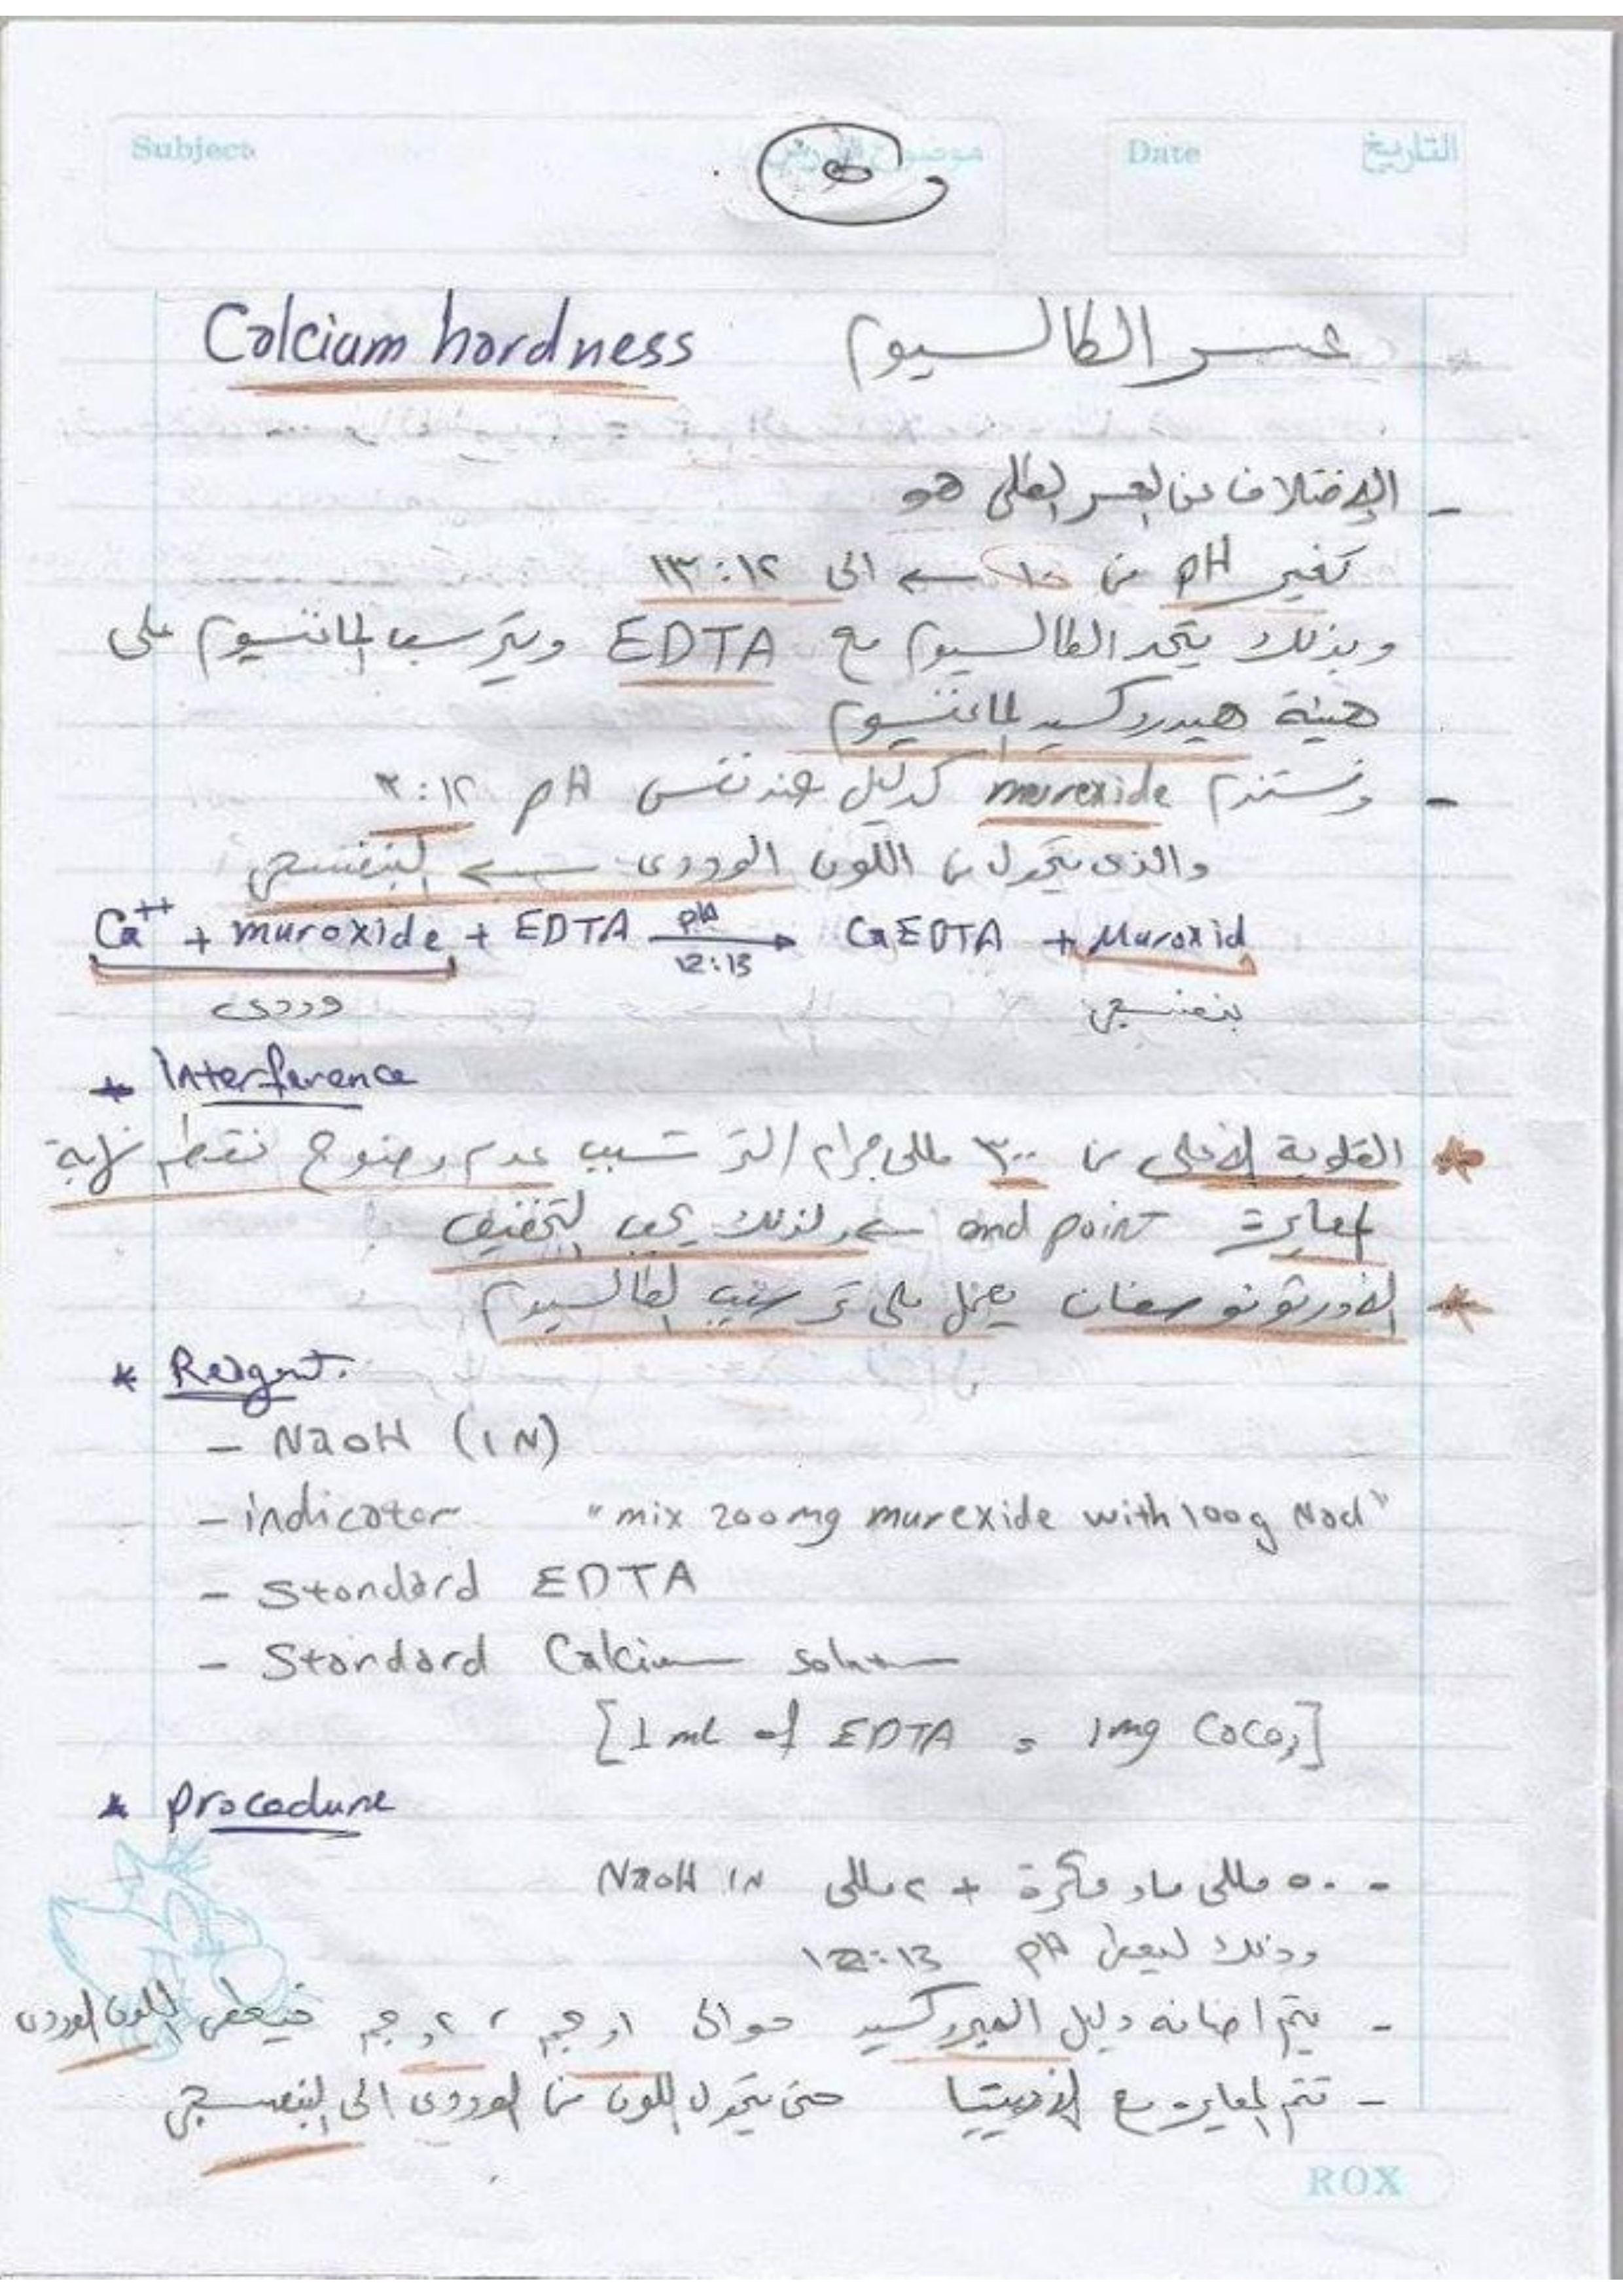 Subject
Date التاريخ
Calcium hardness عسر الكالسيوم
- الإختلاف عن العسر الكلى هو
تغير pH من ١٠ ← الى ١٢ : ١٣
وبذلك يتحد الكالسيوم مع EDTA ويترسب الماغنسيوم على
هيئة هيدروكسيد الماغنسيوم
- ونستخدم murexide كدليل عند نفس pH ١٢ : ٣
والذى يتحول من اللون الوردى ← البنفسجى
Ca++ + muroxide + EDTA pH 12:13 → CaEDTA + Muroxid
وردى بنفسجى
* Interference
* القلوية الأعلى من ٣٠٠ مللى جرام / لتر تسبب عدم وضوح نقطة نهاية
المعايرة end point ← ولذلك يجب التخفيف
* الأورثوفوسفات يعمل على ترسيب الكالسيوم
* Reagent.
- NaOH (1N)
- indicator "mix 200mg murexide with 100g Nacl"
- Standard EDTA
- Standard Calcium solution
[1 mL of EDTA = 1mg CaCO3]
* procedure
- ٥٠ مللى ماء + ٢ مللى NaOH 1N
وذلك ليعطى pH 12:13
- يتم اضافة دليل الميروكسيد حوالى ١,جم ، ٢,جم فيعطى اللون الوردى
- تتم المعايرة مع الأديتيا حتى يتحول اللون من الوردى الى البنفسجى
ROX